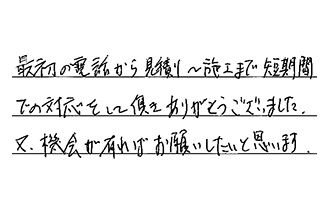 最初の電話から見積り～施工まで短期間
での対応をして頂きありがとうございました。
又、機会が有ればお願いしたいと思います。